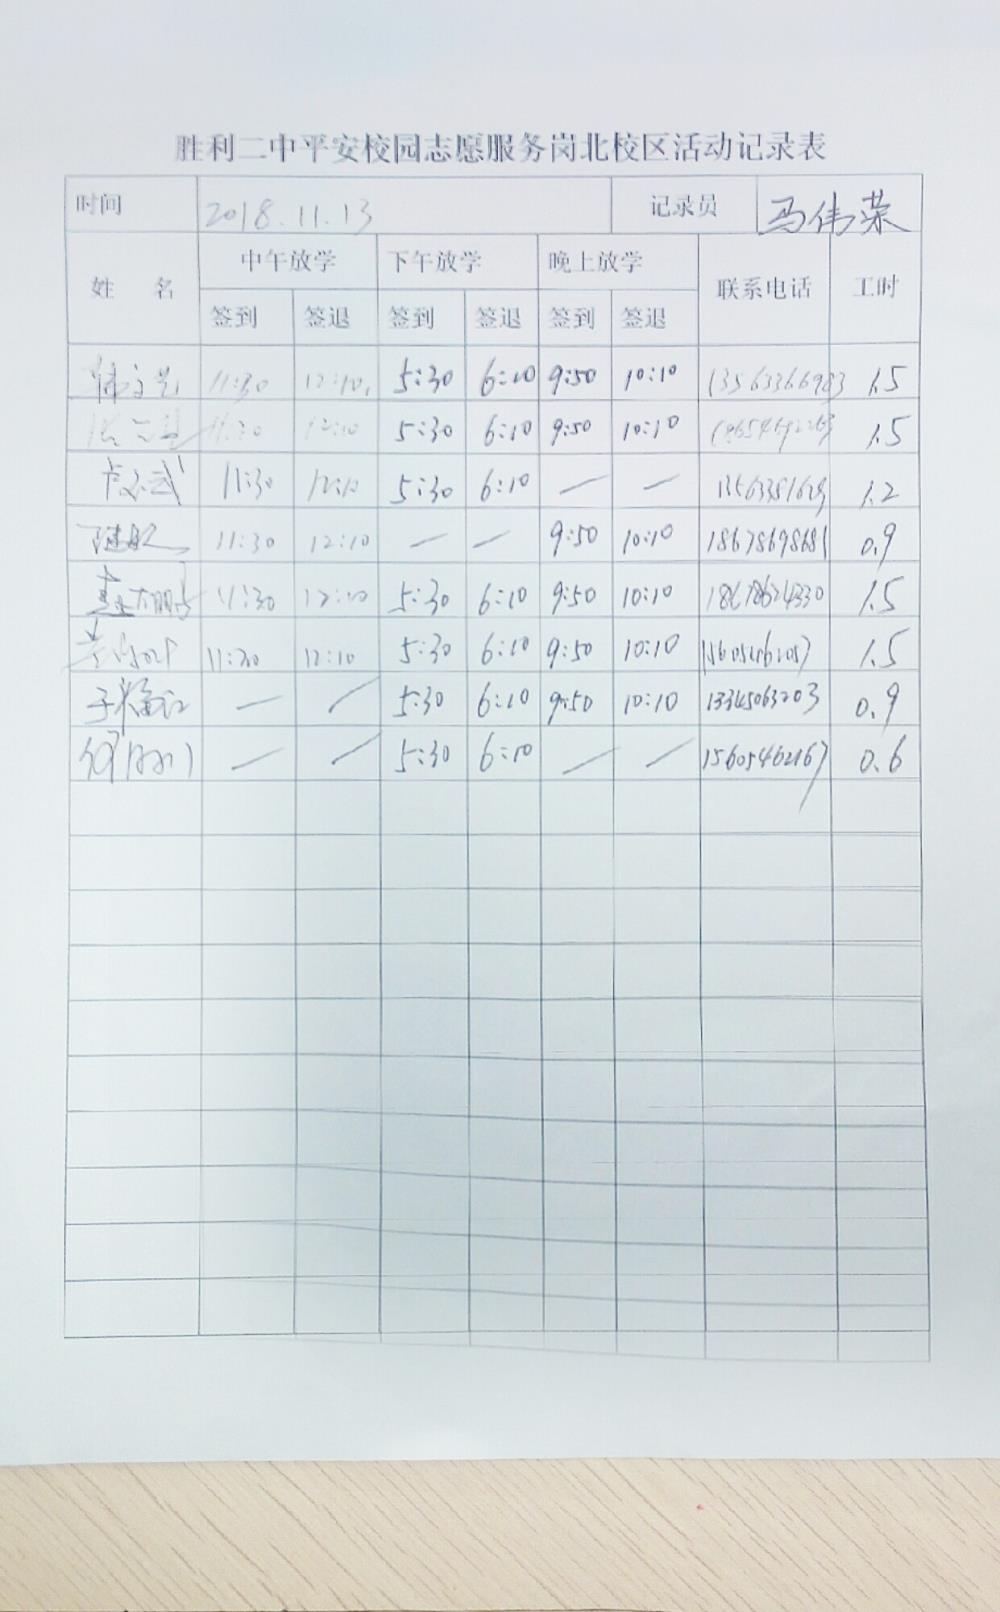 胜利二中平安校园志愿服务岗北校区活动记录表
时间 2018.11.13 记录员 马伟荣
姓 名 中午放学 下午放学 晚上放学 联系电话 工时
签到 签退 签到 签退 签到 签退
11:30 12:10 5:30 6:10 9:50 10:10 13563366983 1.5
11:30 12:10 5:30 6:10 9:50 10:10 1.5
11:30 12:10 5:30 6:10 — — 1.2
11:30 12:10 — — 9:50 10:10 18678698681 0.9
11:30 12:10 5:30 6:10 9:50 10:10 18678624330 1.5
11:30 12:10 5:30 6:10 9:50 10:10 1.5
— — 5:30 6:10 9:50 10:10 13345063203 0.9
— — 5:30 6:10 — — 15605462167 0.6